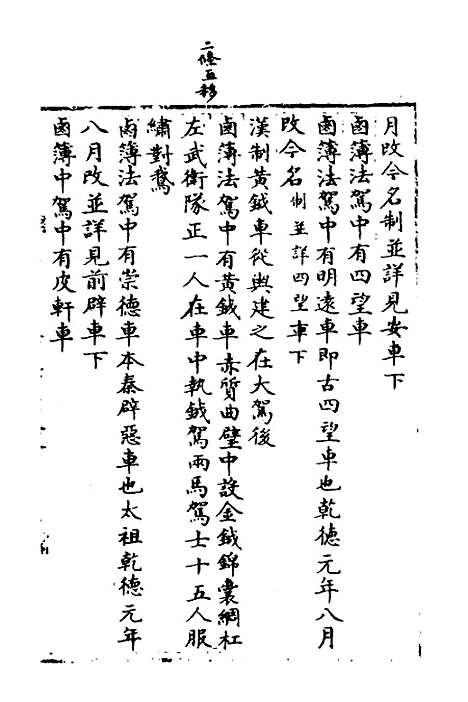 二條五移
月改今名制並詳見安車下
鹵簿法駕中有四望車
鹵簿法駕中有明遠車即古四望車也乾德元年八月
改今名制並詳四望車下
漢制黃鉞車從輿建之在大駕後
鹵簿法駕中有黃鉞車赤質曲壁中設金鉞錦囊綢杠
左武衛隊正一人在車中執鉞駕兩馬駕士十五人服
繡對鵝
鹵簿法駕中有崇德車本秦辟惡車也太祖乾德元年
八月改並詳見前辟車下
鹵簿中駕中有皮軒車